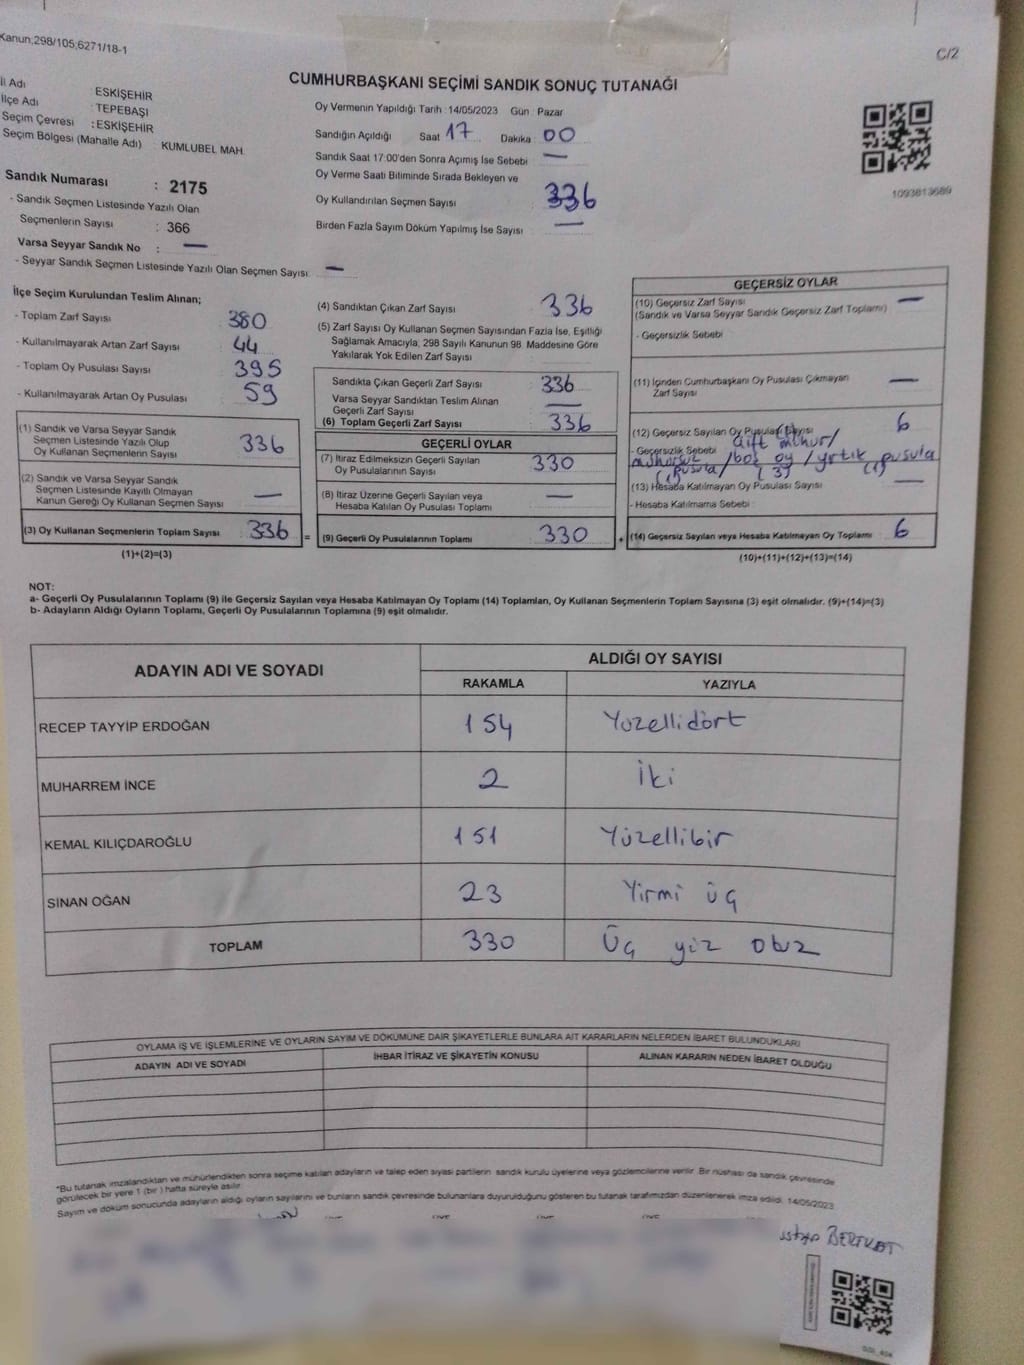 Kanun;298/105;6271/18-1
C/2
CUMHURBAŞKANI SEÇİMİ SANDIK SONUÇ TUTANAĞI
İl Adı ESKİŞEHİR
İlçe Adı : TEPEBAŞI
Seçim Çevresi : ESKİŞEHİR
Seçim Bölgesi (Mahalle Adı) : KUMLUBEL MAH.
Sandık Numarası : 2175
- Sandık Seçmen Listesinde Yazılı Olan
Seçmenlerin Sayısı : 366
Varsa Seyyar Sandık No : —
- Seyyar Sandık Seçmen Listesinde Yazılı Olan Seçmen Sayısı: —
Oy Vermenin Yapıldığı Tarih : 14/05/2023 Gün : Pazar
Sandığın Açıldığı Saat 17 Dakika : 00
Sandık Saat 17:00'den Sonra Açımış İse Sebebi : —
Oy Verme Saati Bitiminde Sırada Bekleyen ve
Oy Kullandırılan Seçmen Sayısı 336
Birden Fazla Sayım Döküm Yapılmış İse Sayısı : —
1093813689
İlçe Seçim Kurulundan Teslim Alınan;
- Toplam Zarf Sayısı : 380
- Kullanılmayarak Artan Zarf Sayısı : 44
- Toplam Oy Pusulası Sayısı : 395
- Kullanılmayarak Artan Oy Pusulası : 59
(1) Sandık ve Varsa Seyyar Sandık
Seçmen Listesinde Yazılı Olup
Oy Kullanan Seçmenlerin Sayısı : 336
(2) Sandık ve Varsa Seyyar Sandık
Seçmen Listesinde Kayıtlı Olmayan
Kanun Gereği Oy Kullanan Seçmen Sayısı : —
(3) Oy Kullanan Seçmenlerin Toplam Sayısı : 336
(1)+(2)=(3)
(4) Sandıktan Çıkan Zarf Sayısı : 336
(5) Zarf Sayısı Oy Kullanan Seçmen Sayısından Fazla İse, Eşitliği
Sağlamak Amacıyla, 298 Sayılı Kanunun 98. Maddesine Göre
Yakılarak Yok Edilen Zarf Sayısı
Sandıkta Çıkan Geçerli Zarf Sayısı : 336
Varsa Seyyar Sandıktan Teslim Alınan
Geçerli Zarf Sayısı : —
(6) Toplam Geçerli Zarf Sayısı : 336
GEÇERLİ OYLAR
(7) İtiraz Edilmeksizin Geçerli Sayılan
Oy Pusulalarının Sayısı : 330
(8) İtiraz Üzerine Geçerli Sayılan veya
Hesaba Katılan Oy Pusulası Toplamı : —
= (9) Geçerli Oy Pusulalarının Toplamı : 330
GEÇERSİZ OYLAR
(10) Geçersiz Zarf Sayısı : —
(Sandık ve Varsa Seyyar Sandık Geçersiz Zarf Toplamı)
- Geçersizlik Sebebi
(11) İçinden Cumhurbaşkanı Oy Pusulası Çıkmayan
Zarf Sayısı : —
(12) Geçersiz Sayılan Oy Pusulası Sayısı : 6
- Geçersizlik Sebebi : çift mühür/
mühürsüz pusula /boş oy /yırtık pusula
(1) (3) (1)
(13) Hesaba Katılmayan Oy Pusulası Sayısı : —
- Hesaba Katılmama Sebebi :
+ (14) Geçersiz Sayılan veya Hesaba Katılmayan Oy Toplamı : 6
(10)+(11)+(12)+(13)=(14)
NOT:
a- Geçerli Oy Pusulalarının Toplamı (9) ile Geçersiz Sayılan veya Hesaba Katılmayan Oy Toplamı (14) Toplamları, Oy Kullanan Seçmenlerin Toplam Sayısına (3) eşit olmalıdır. (9)+(14)=(3)
b- Adayların Aldığı Oyların Toplamı, Geçerli Oy Pusulalarının Toplamına (9) eşit olmalıdır.
ADAYIN ADI VE SOYADI ALDIĞI OY SAYISI
RAKAMLA YAZIYLA
RECEP TAYYİP ERDOĞAN 154 Yüzellidört
MUHARREM İNCE 2 İki
KEMAL KILIÇDAROĞLU 151 Yüzellibir
SİNAN OĞAN 23 Yirmi üç
TOPLAM 330 Üç yüz otuz
OYLAMA İŞ VE İŞLEMLERİNE VE OYLARIN SAYIM VE DÖKÜMÜNE DAİR ŞİKAYETLERLE BUNLARA AİT KARARLARIN NELERDEN İBARET BULUNDUKLARI
ADAYIN ADI VE SOYADI İHBAR İTİRAZ VE ŞİKAYETİN KONUSU ALINAN KARARIN NEDEN İBARET OLDUĞU
"Bu tutanak imzalandıktan ve mühürlendikten sonra seçime katılan adayların ve talep eden siyasi partilerin sandık kurulu üyelerine veya gözlemcilerine verilir. Bir nüshası da sandık çevresinde
görülecek bir yere 1 (bir) hafta süreyle asılır.
Sayım ve döküm sonucunda adayların aldığı oyların sayılarını ve bunların sandık çevresinde bulunanlara duyurulduğunu gösteren bu tutanak tarafımızdan düzenlenerek imza edildi. 14/05/2023